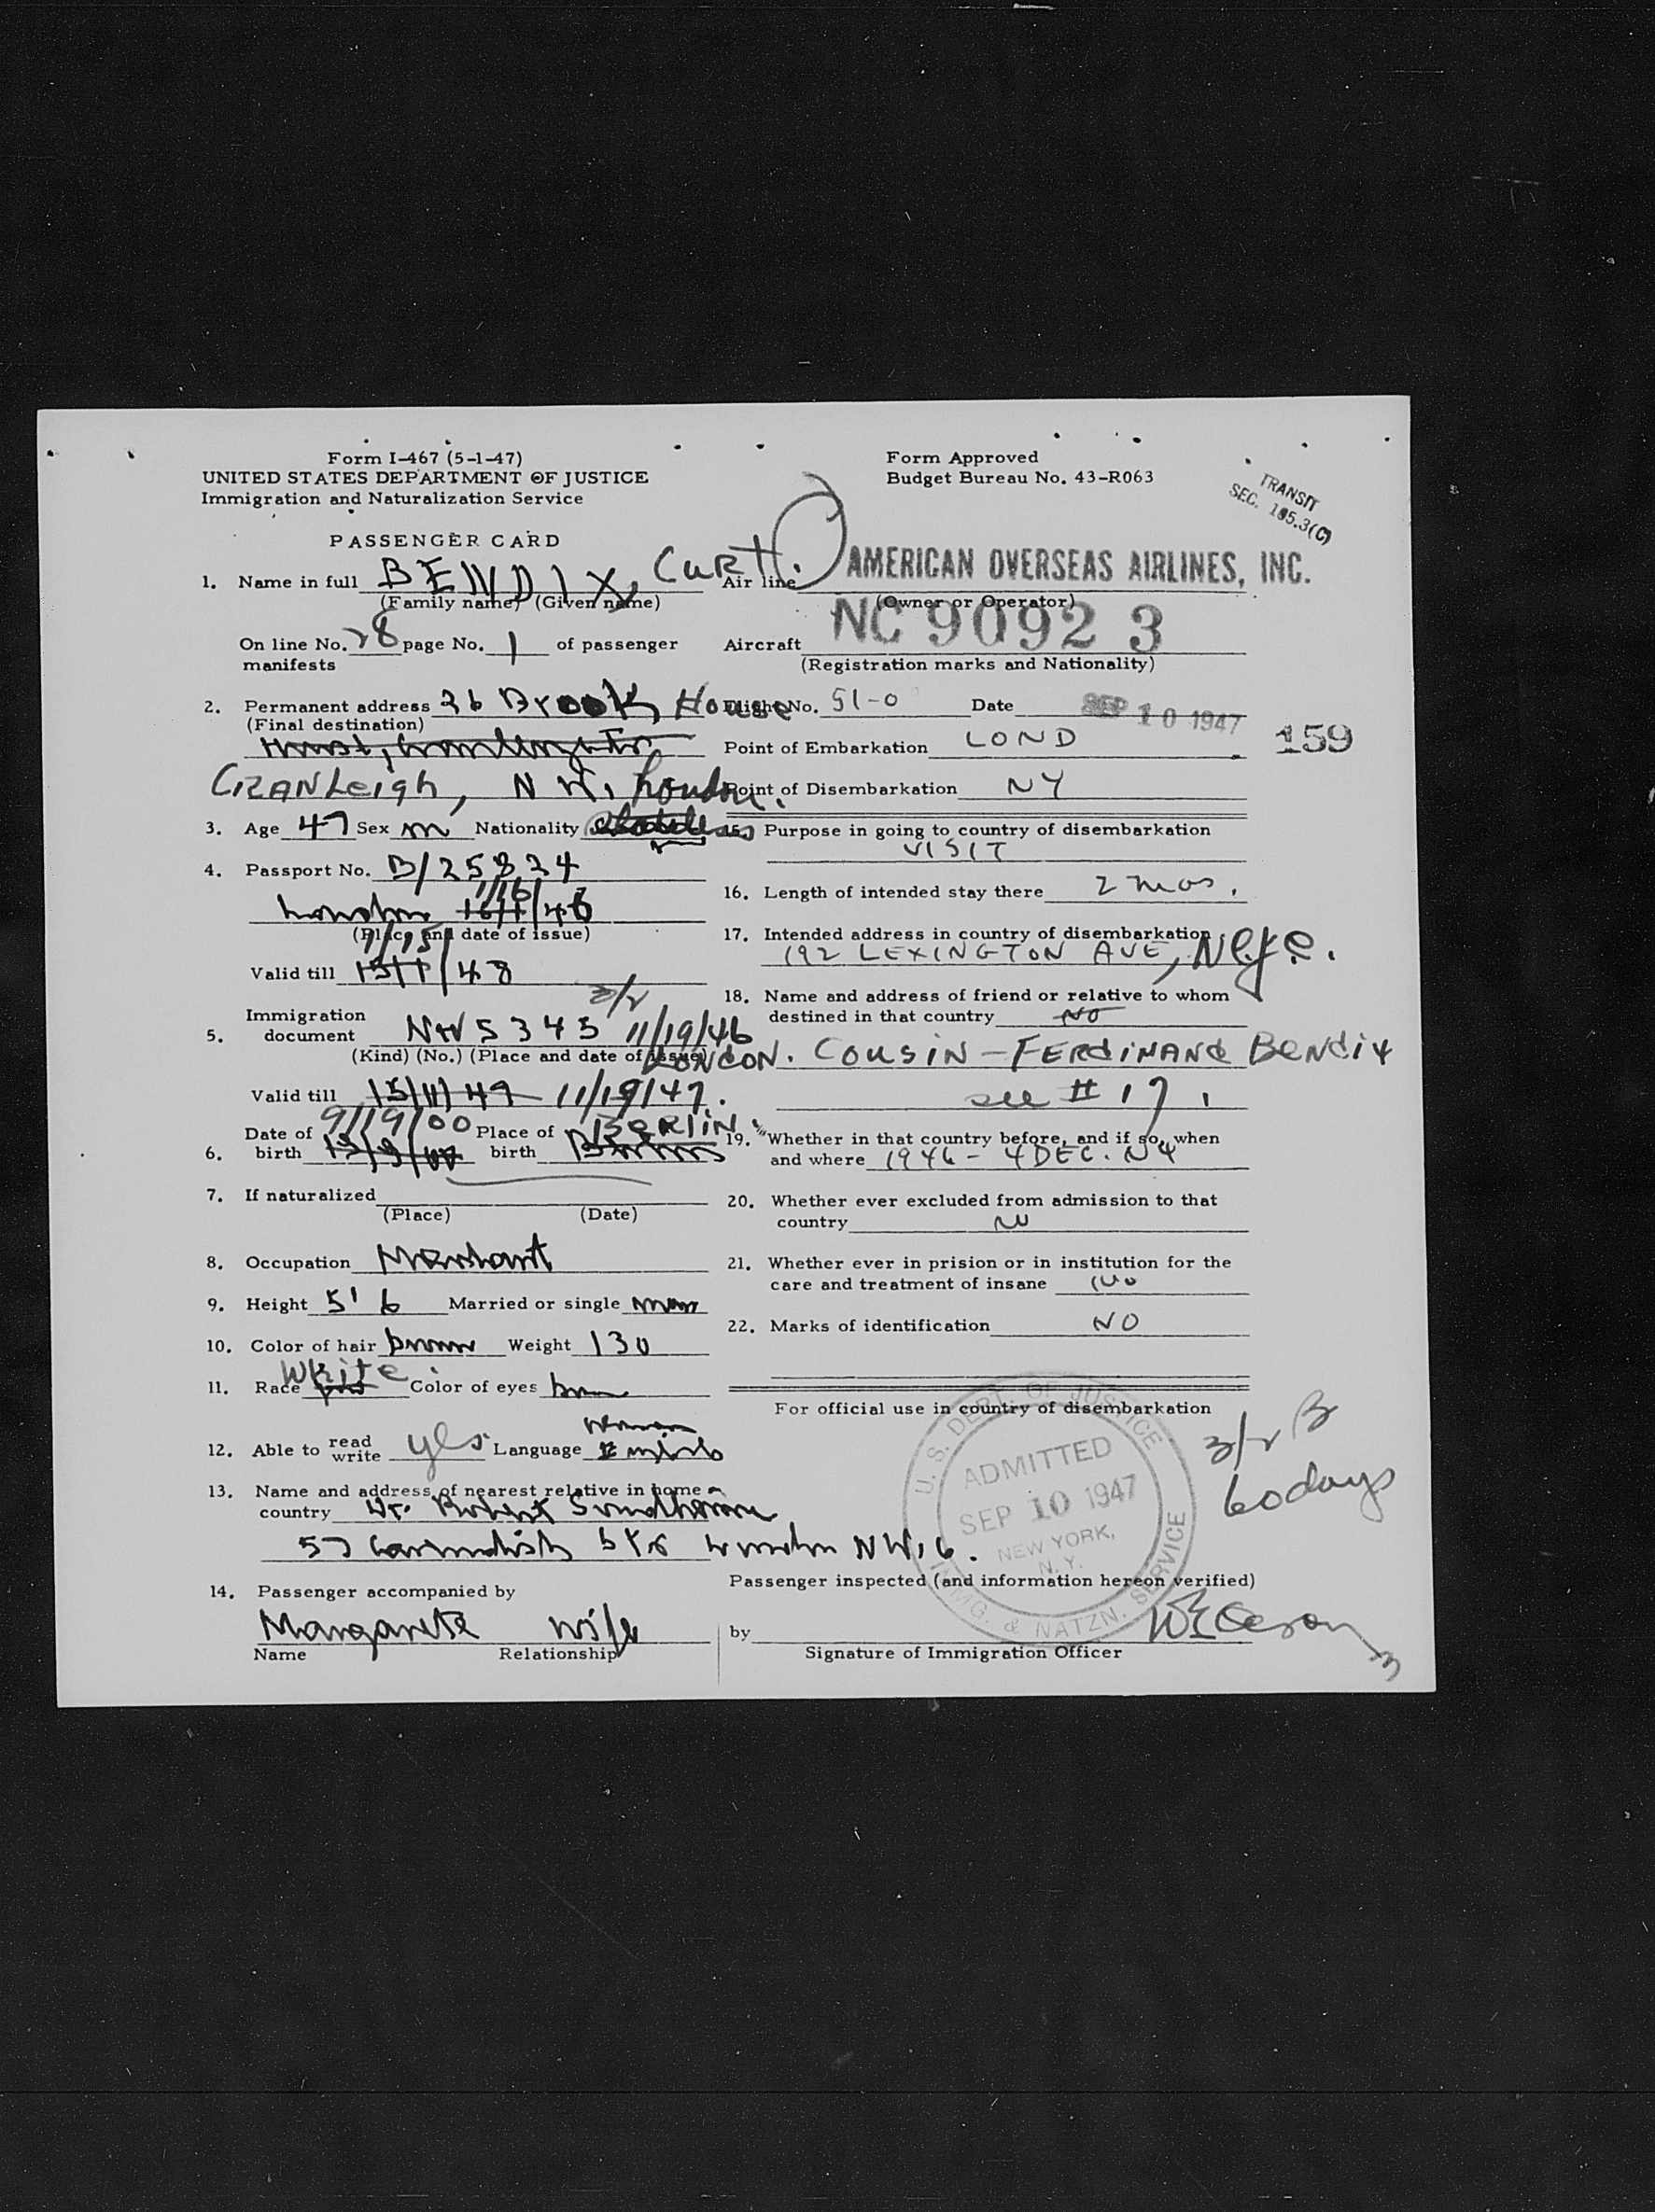 Form I-467 (5-1-47)
UNITED STATES DEPARTMENT OF JUSTICE
Immigration and Naturalization Service
Form Approved
Budget Bureau No. 43-R063
TRANSIT
SEC. 105.3(C)
PASSENGER CARD
1. Name in full BENDIX, CURT.
(Family name) (Given name)
Air line AMERICAN OVERSEAS AIRLINES, INC.
(Owner or Operator)
On line No. 28 page No. 1 of passenger
manifests
Aircraft NC 90923
(Registration marks and Nationality)
2. Permanent address 26 Brook House
(Final destination)
CRANLeigh, N W, London.
Flight No. 51-0 Date SEP 10 1947
Point of Embarkation LOND
159
Point of Disembarkation NY
3. Age 47 Sex m Nationality Stateless
4. Passport No. B/25824
1/16
London 16/1/46
(Place and date of issue)
1/15
Valid till 15/1/48
3/2
5. Immigration
document NIV 5345 11/19/46
(Kind) (No.) (Place and date of issue) LONDON.
Valid till 15/11/47 11/19/47.
6. Date of birth 9/19/00 Place of birth BERLIN
7. If naturalized
(Place) (Date)
8. Occupation Merchant
9. Height 5' 6 Married or single marr
10. Color of hair brown Weight 130
11. Race White Color of eyes brn
12. Able to read
write yes Language German
English
13. Name and address of nearest relative in home
country Dr. Robert
57 Cavendish London NW. 6.
14. Passenger accompanied by
Margarete wife
Name Relationship
15. Purpose in going to country of disembarkation
VISIT
16. Length of intended stay there 2 mos.
17. Intended address in country of disembarkation
192 LEXINGTON AVE, NYC.
18. Name and address of friend or relative to whom
destined in that country NO
COUSIN - FERDINAND BENDIX
see # 17.
19. Whether in that country before, and if so, when
and where 1946 - 4 DEC. NY
20. Whether ever excluded from admission to that
country No
21. Whether ever in prision or in institution for the
care and treatment of insane No
22. Marks of identification NO
For official use in country of disembarkation
U. S. DEPT. OF JUSTICE
ADMITTED
SEP 10 1947
NEW YORK,
N. Y.
IMMG. & NATZN. SERVICE
3/2 B
60 days
Passenger inspected (and information hereon verified)
by
Signature of Immigration Officer